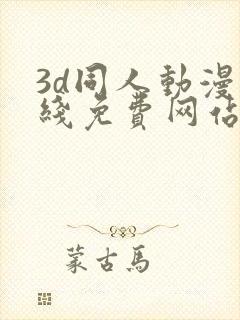 3d同人動漫
綫免費网佔
蒙古馬